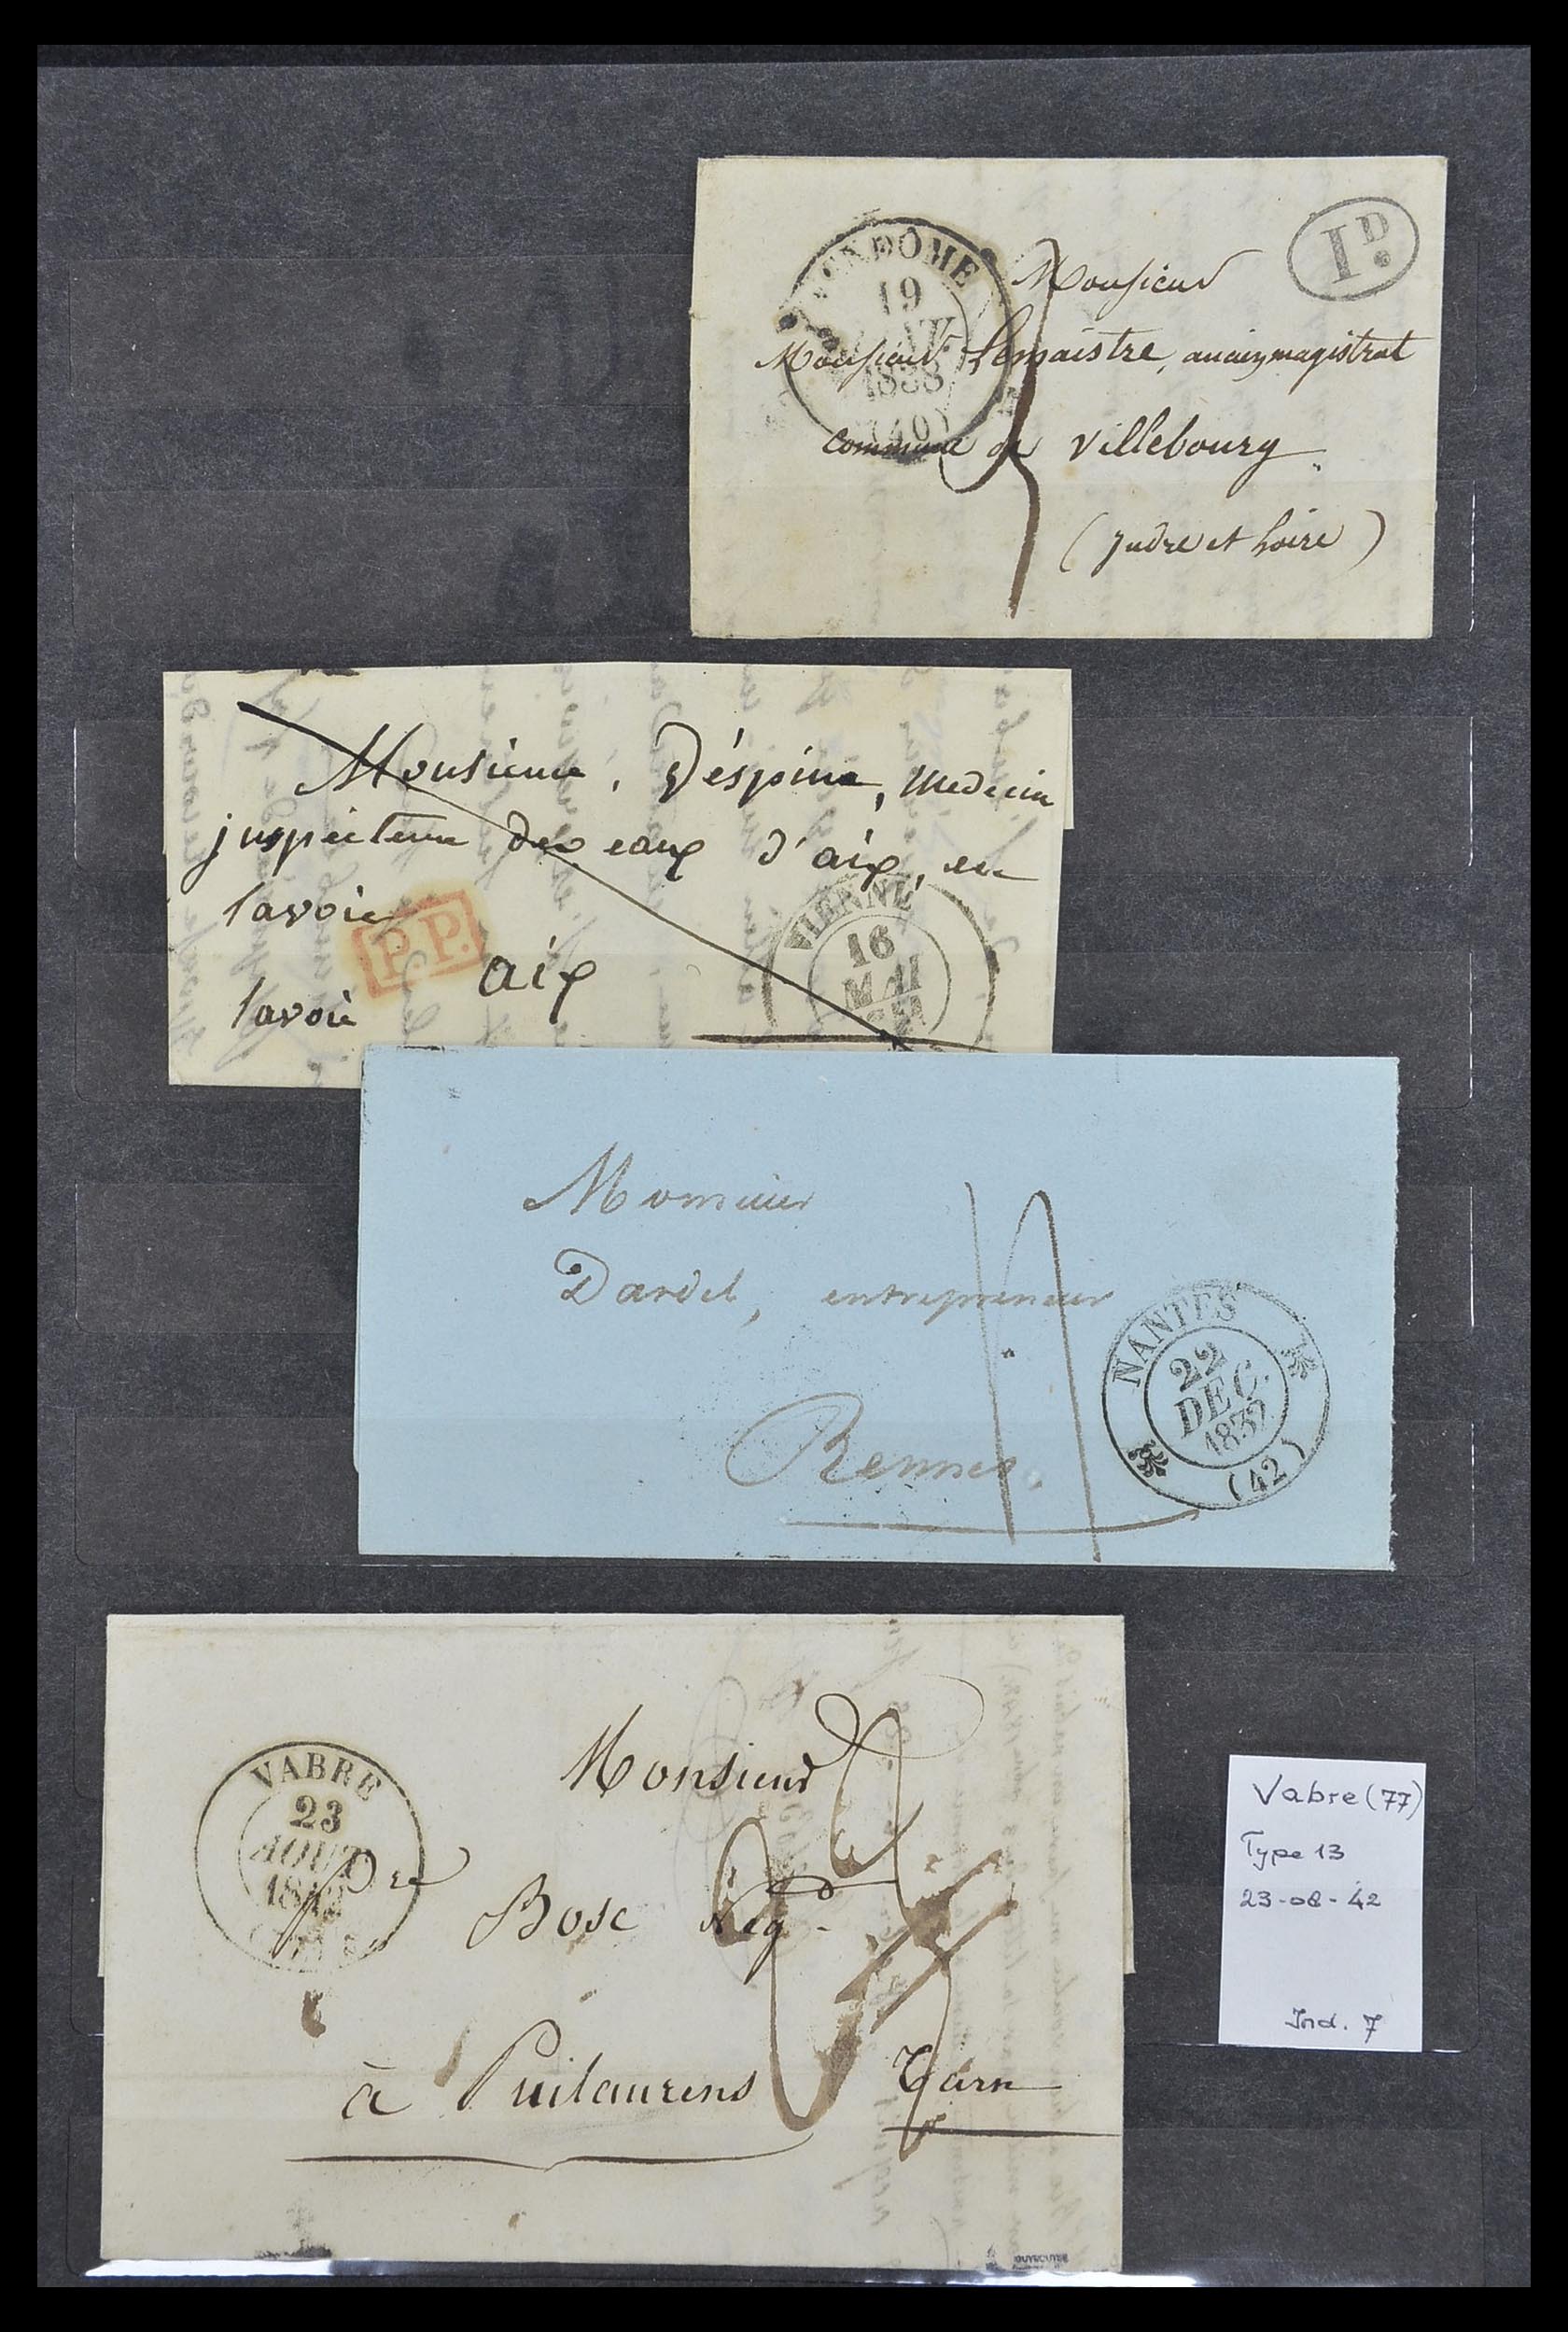 VENDOME
19
1838
(40)
1D.
Monsieur
Monsieur Lemaistre, ancien magistrat
commune de villebourg
(Indre et Loire)
Monsieur, Déspine, Medecin
juspecteur des eaux d'aix, en
Savoie
P.P.
aix
Savoie
VIENNE
16
MAI
Monsieur
Dardel, entrepreneur
Rennes.
NANTES
22
DEC.
1832
(42)
VABRE
23
AOUT
Monsieur
Pre Bosc Négt
à Puilaurens Tarn
Vabre (77)
Type 13
23-08-42
Ind. 7